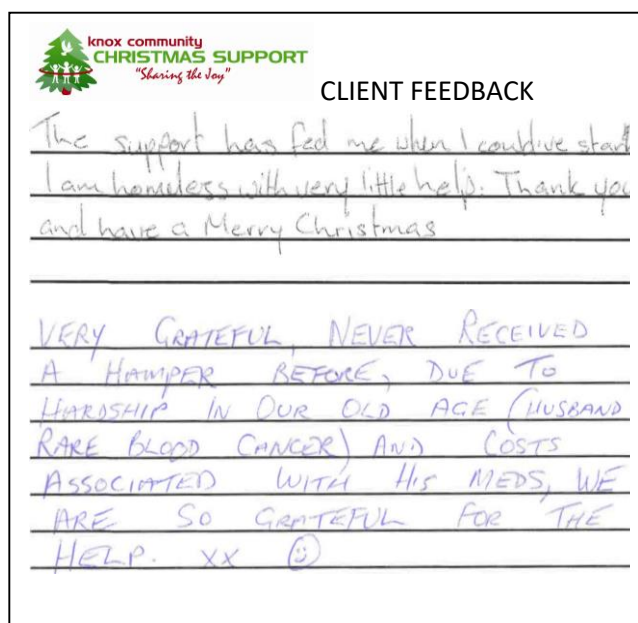 knox community
CHRISTMAS SUPPORT
"Sharing the Joy"
CLIENT FEEDBACK
The support has fed me when I could've
I am homeless with very little help. Thank you
and have a Merry Christmas
VERY GRATEFUL, NEVER RECEIVED
A HAMPER BEFORE, DUE TO
HARDSHIP IN OUR OLD AGE (HUSBAND
RARE BLOOD CANCER) AND COSTS
ASSOCIATED WITH HIS MEDS, WE
ARE SO GRATEFUL FOR THE
HELP. xx ☺